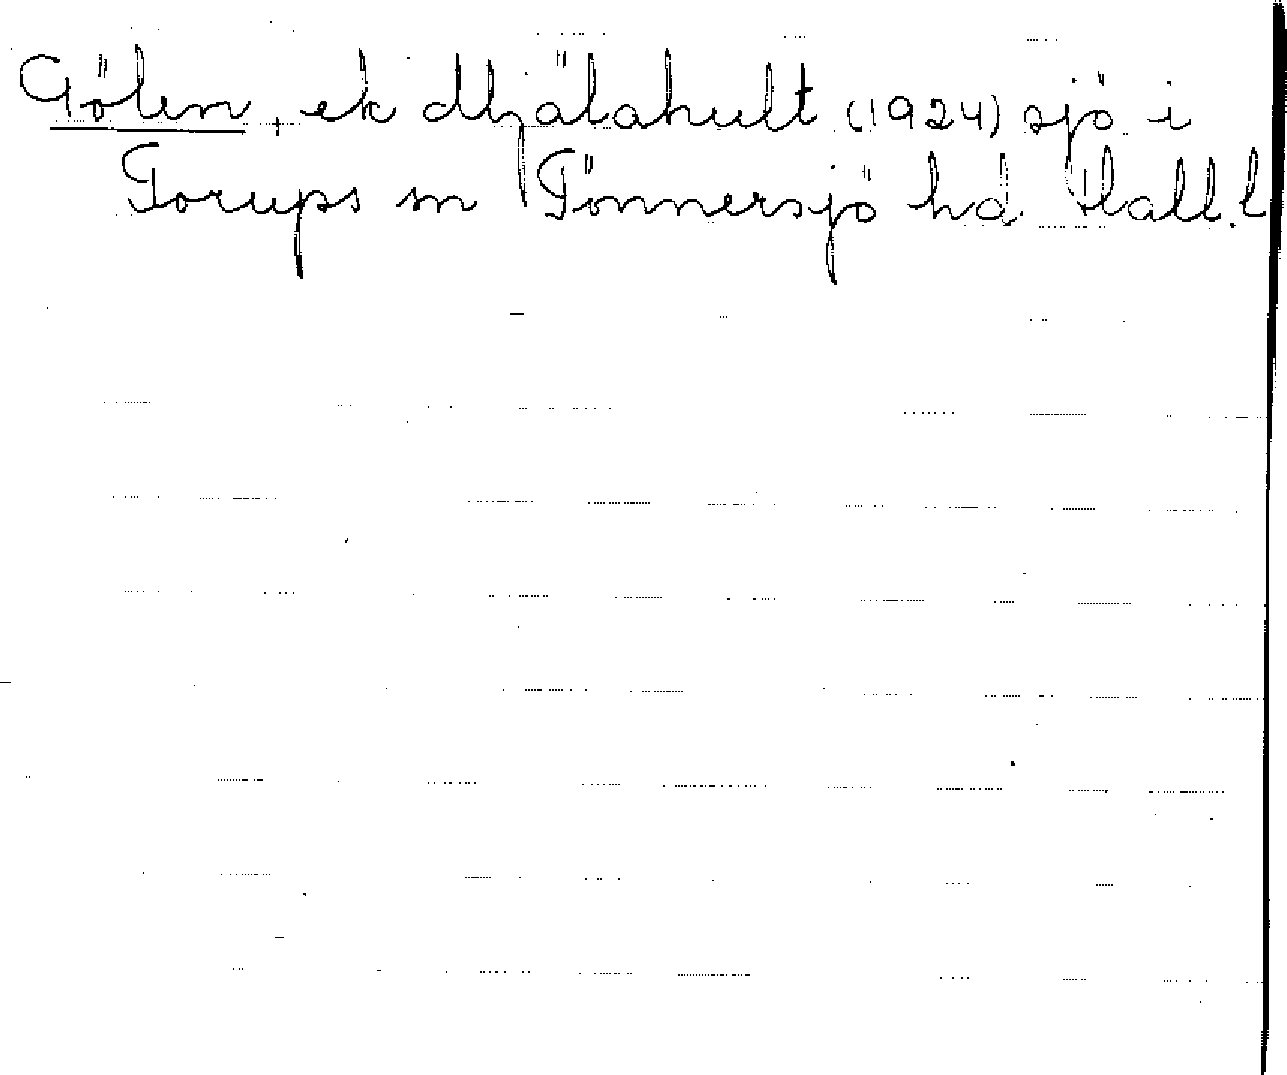 Gölen, ek Mjälahult (1924) sjö i
Torups sn Tönnersjö hd. Hall.l